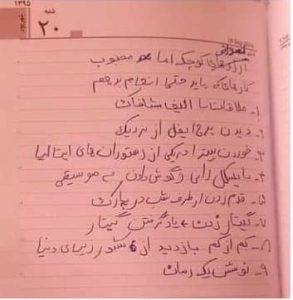 ۱۳۹۵
شنبه
۲۰
شهریور
اهداف
آرزوهای کوچک اما محبوب
کارهای که باید حتما انجام بدهم
۱- ملاقات با الیف شافاک
۲- دیدن برج ایفل از نزدیک
۳- خوردن پیتزا در یکی از رستوران های ایتالیا
۴- بایسکل رانی و گوش دادن به موسیقی
۵- قدم زدن از طرف شب در پارک
۷- گیتار زدن + یاد گرفتن گیتار
۸- کم از کم بازدید از ۶ کشور زیبای دنیا
۹- نوشتن یک رمان